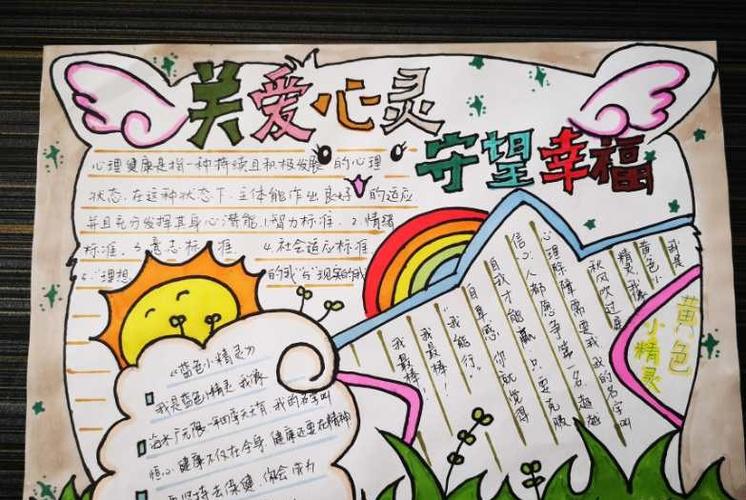 关爱心灵
守望幸福
心理健康是指一种持续且积极发展的心理
状态,在这种状态下,主体能作出良好的适应
并且充分发挥其身心潜能.1.智力标准.2.情绪
标准.3.意志标准.4.社会适应标准
5."理想的我"与"现实的我"
《蓝色小精灵》
我是蓝色小精灵 我像
海水广无限一年四季天天有 我的名字叫
恒心 健康不仅在全身 健康还要在精神
要坚持去保健 你会
黄色小精灵
我是
黄色小
精灵,我像
秋风吹过
我的名字叫
心理除障需要我
信心,人都愿争第一名,超越
自我才能赢.只要克服
自卑感.你就觉得
"我能行".
我最棒!
我最棒!